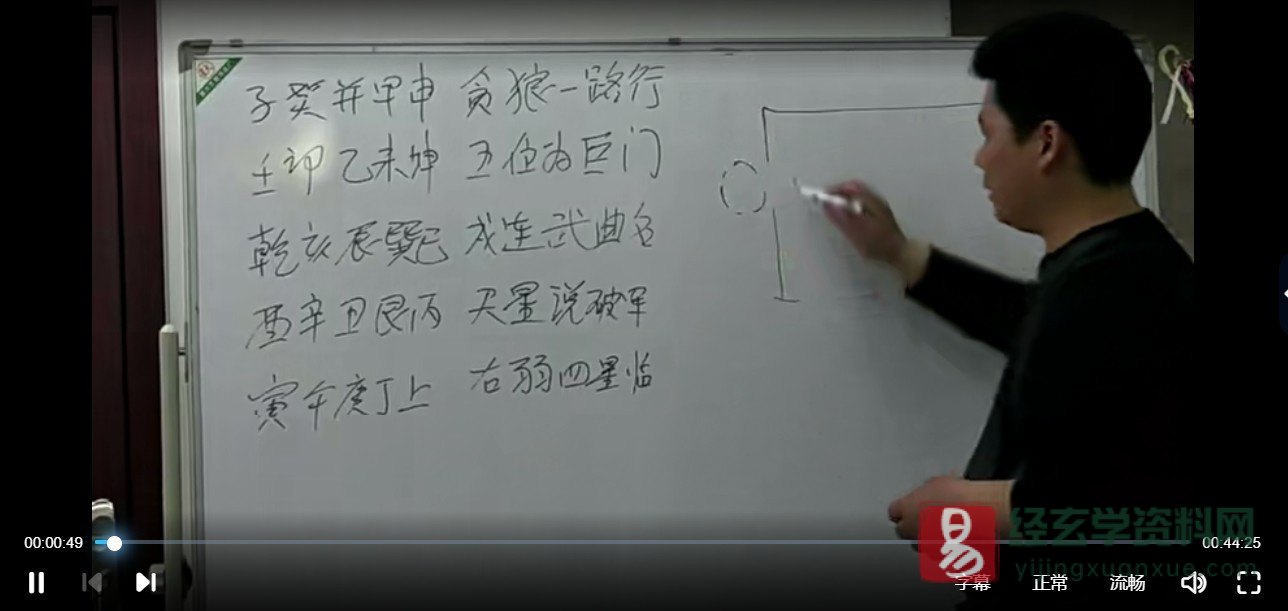 子癸并甲申 贪狼一路行
壬卯乙未坤 五位为巨门
乾亥辰巽巳 戌连武曲名
酉辛丑艮丙 天星说破军
寅午庚丁上 右弼四星临
00:00:49
00:44:25
易
经玄学资料网
yijingxuanxue.com
字幕
正常
流畅